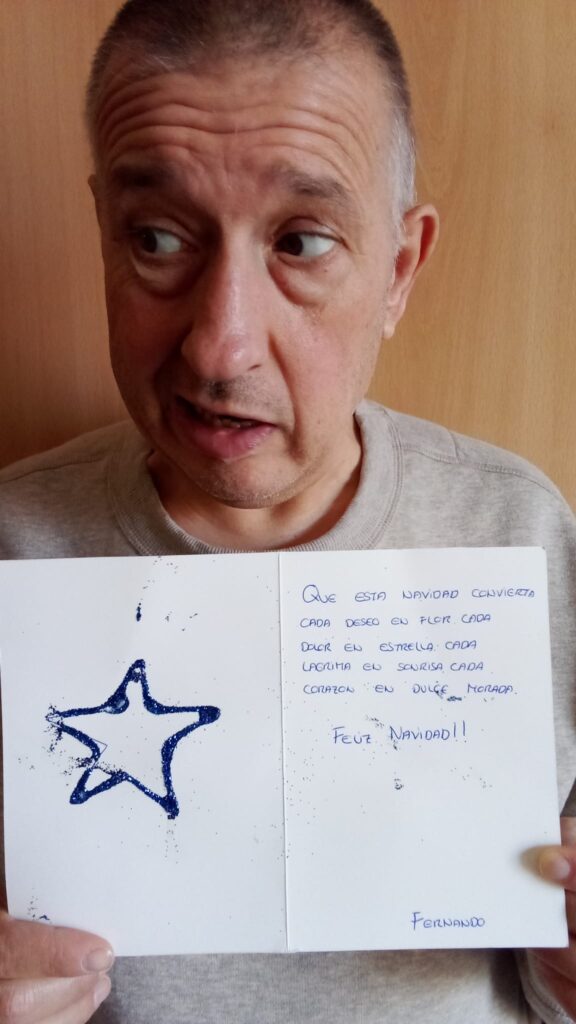 QUE ESTA NAVIDAD CONVIERTA
CADA DESEO EN FLOR. CADA
DOLOR EN ESTRELLA. CADA
LAGRIMA EN SONRISA. CADA
CORAZON EN DULCE MORADA.
FELIZ NAVIDAD!!
FERNANDO